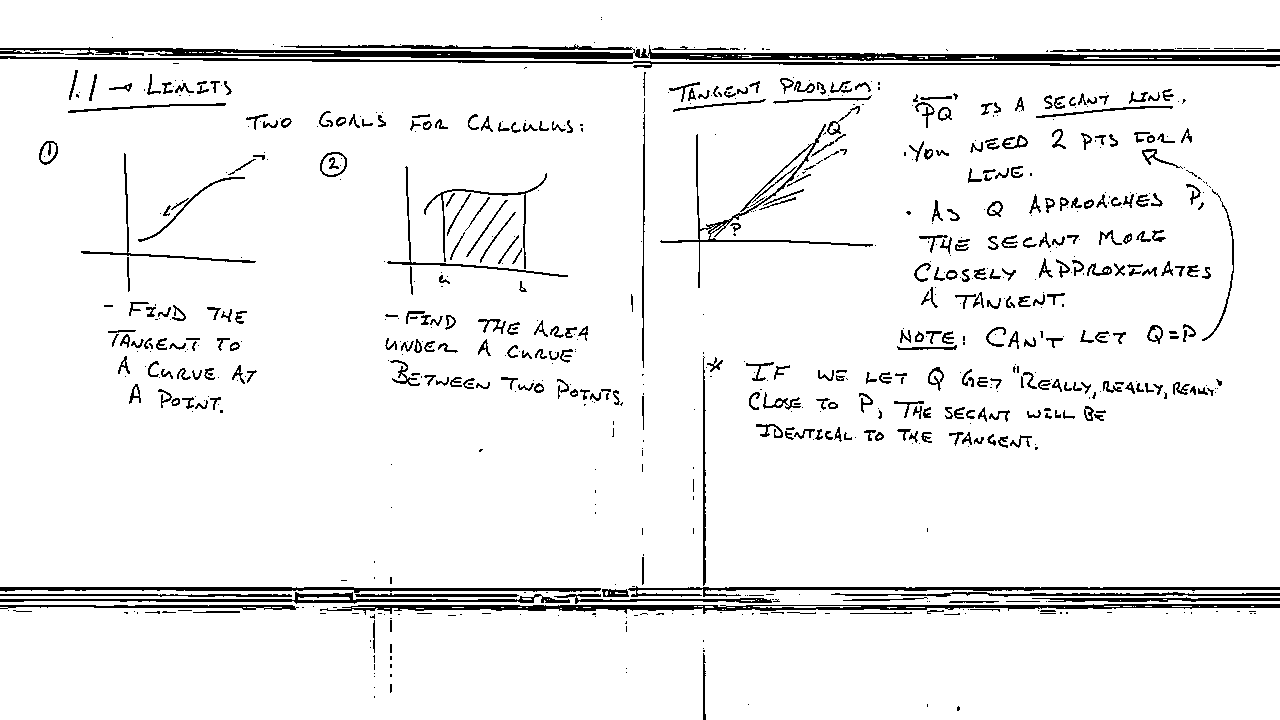 1.1 → LIMITS
TWO GOALS FOR CALCULUS:
①
②
a
b
- FIND THE
TANGENT TO
A CURVE AT
A POINT.
- FIND THE AREA
UNDER A CURVE
BETWEEN TWO POINTS.
TANGENT PROBLEM:
Q
P
PQ IS A SECANT LINE.
· YOU NEED 2 PTS FOR A
LINE.
· AS Q APPROACHES P,
THE SECANT MORE
CLOSELY APPROXIMATES
A TANGENT.
NOTE: CAN'T LET Q=P
* IF WE LET Q GET "REALLY, REALLY, REALLY"
CLOSE TO P, THE SECANT WILL BE
IDENTICAL TO THE TANGENT.